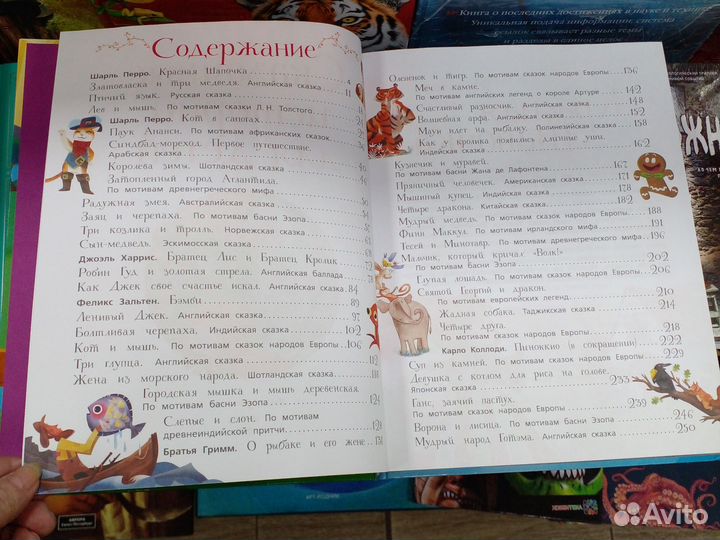 Книга о последних достижениях в науке и технике
Уникальная подача информации: система
ссылок связывает разные темы
и разделы в единое целое
Содержание
Шарль Перро. Красная Шапочка 4
Златовласка и три медведя. Английская сказка 11
Птичий язык. Русская сказка
Лев и мышь. По мотивам сказки Л. Н. Толстого
Шарль Перро. Кот в сапогах
Паук Ананси. По мотивам африканских сказок
Синдбад-мореход. Первое путешествие.
Арабская сказка
Королева зимы. Шотландская сказка
Затопленный город Атлантида.
По мотивам древнегреческого мифа
Радужная змея. Австралийская сказка
Заяц и черепаха. По мотивам басни Эзопа
Три козлика и тролль. Норвежская сказка
Сын-медведь. Эскимосская сказка
Джоэль Харрис. Братец Лис и Братец Кролик
Робин Гуд и золотая стрела. Английская баллада
Как Джек свое счастье искал. Английская сказка 84
Феликс Зальтен. Бэмби 89
Ленивый Джек. Английская сказка 97
Болтливая черепаха. Индийская сказка 102
Кот и мышь. По мотивам сказок народов Европы 106
Три глупца. Английская сказка 112
Жена из морского народа. Шотландская сказка 118
Городская мышка и мышь деревенская.
По мотивам басни Эзопа 124
Слепые и слон. По мотивам
древнеиндийской притчи 128
Братья Гримм. О рыбаке и его жене 131
Олененок и тигр. По мотивам сказок народов Европы 136
Меч в камне.
По мотивам английских легенд о короле Артуре 142
Счастливый разносчик. Английская сказка 148
Волшебная арфа. Английская сказка 152
Мауи идет на рыбалку. Полинезийская сказка 158
Как у кролика появились длинные уши.
Индейская сказка 162
Кузнечик и муравей.
По мотивам басни Жана де Лафонтена 167
Пряничный человечек. Американская сказка 171
Мышиный купец. Индийская сказка 178
Четыре дракона. Китайская сказка 182
Мудрый медведь. По мотивам сказок народов Европы 188
Финн Маккул. По мотивам ирландского мифа 191
Тесей и Минотавр. По мотивам древнегреческого мифа 196
Мальчик, который кричал «Волк!»
По мотивам басни Эзопа 202
Глупая лошадь. По мотивам сказок народов Европы 206
Святой Георгий и дракон.
По мотивам европейских легенд 210
Жадная собака. Таджикская сказка 214
Четыре друга.
По мотивам сказок народов Европы 218
Карло Коллоди. Пиноккио (в сокращении) 222
Суп из камней. По мотивам сказок народов Европы 229
Девушка с котлом для риса на голове.
Японская сказка 233
Ганс, заячий пастух.
По мотивам сказок народов Европы 239
Ворона и лисица. По мотивам басни Эзопа 246
Мудрый народ Готэма. Английская сказка 250
Avito